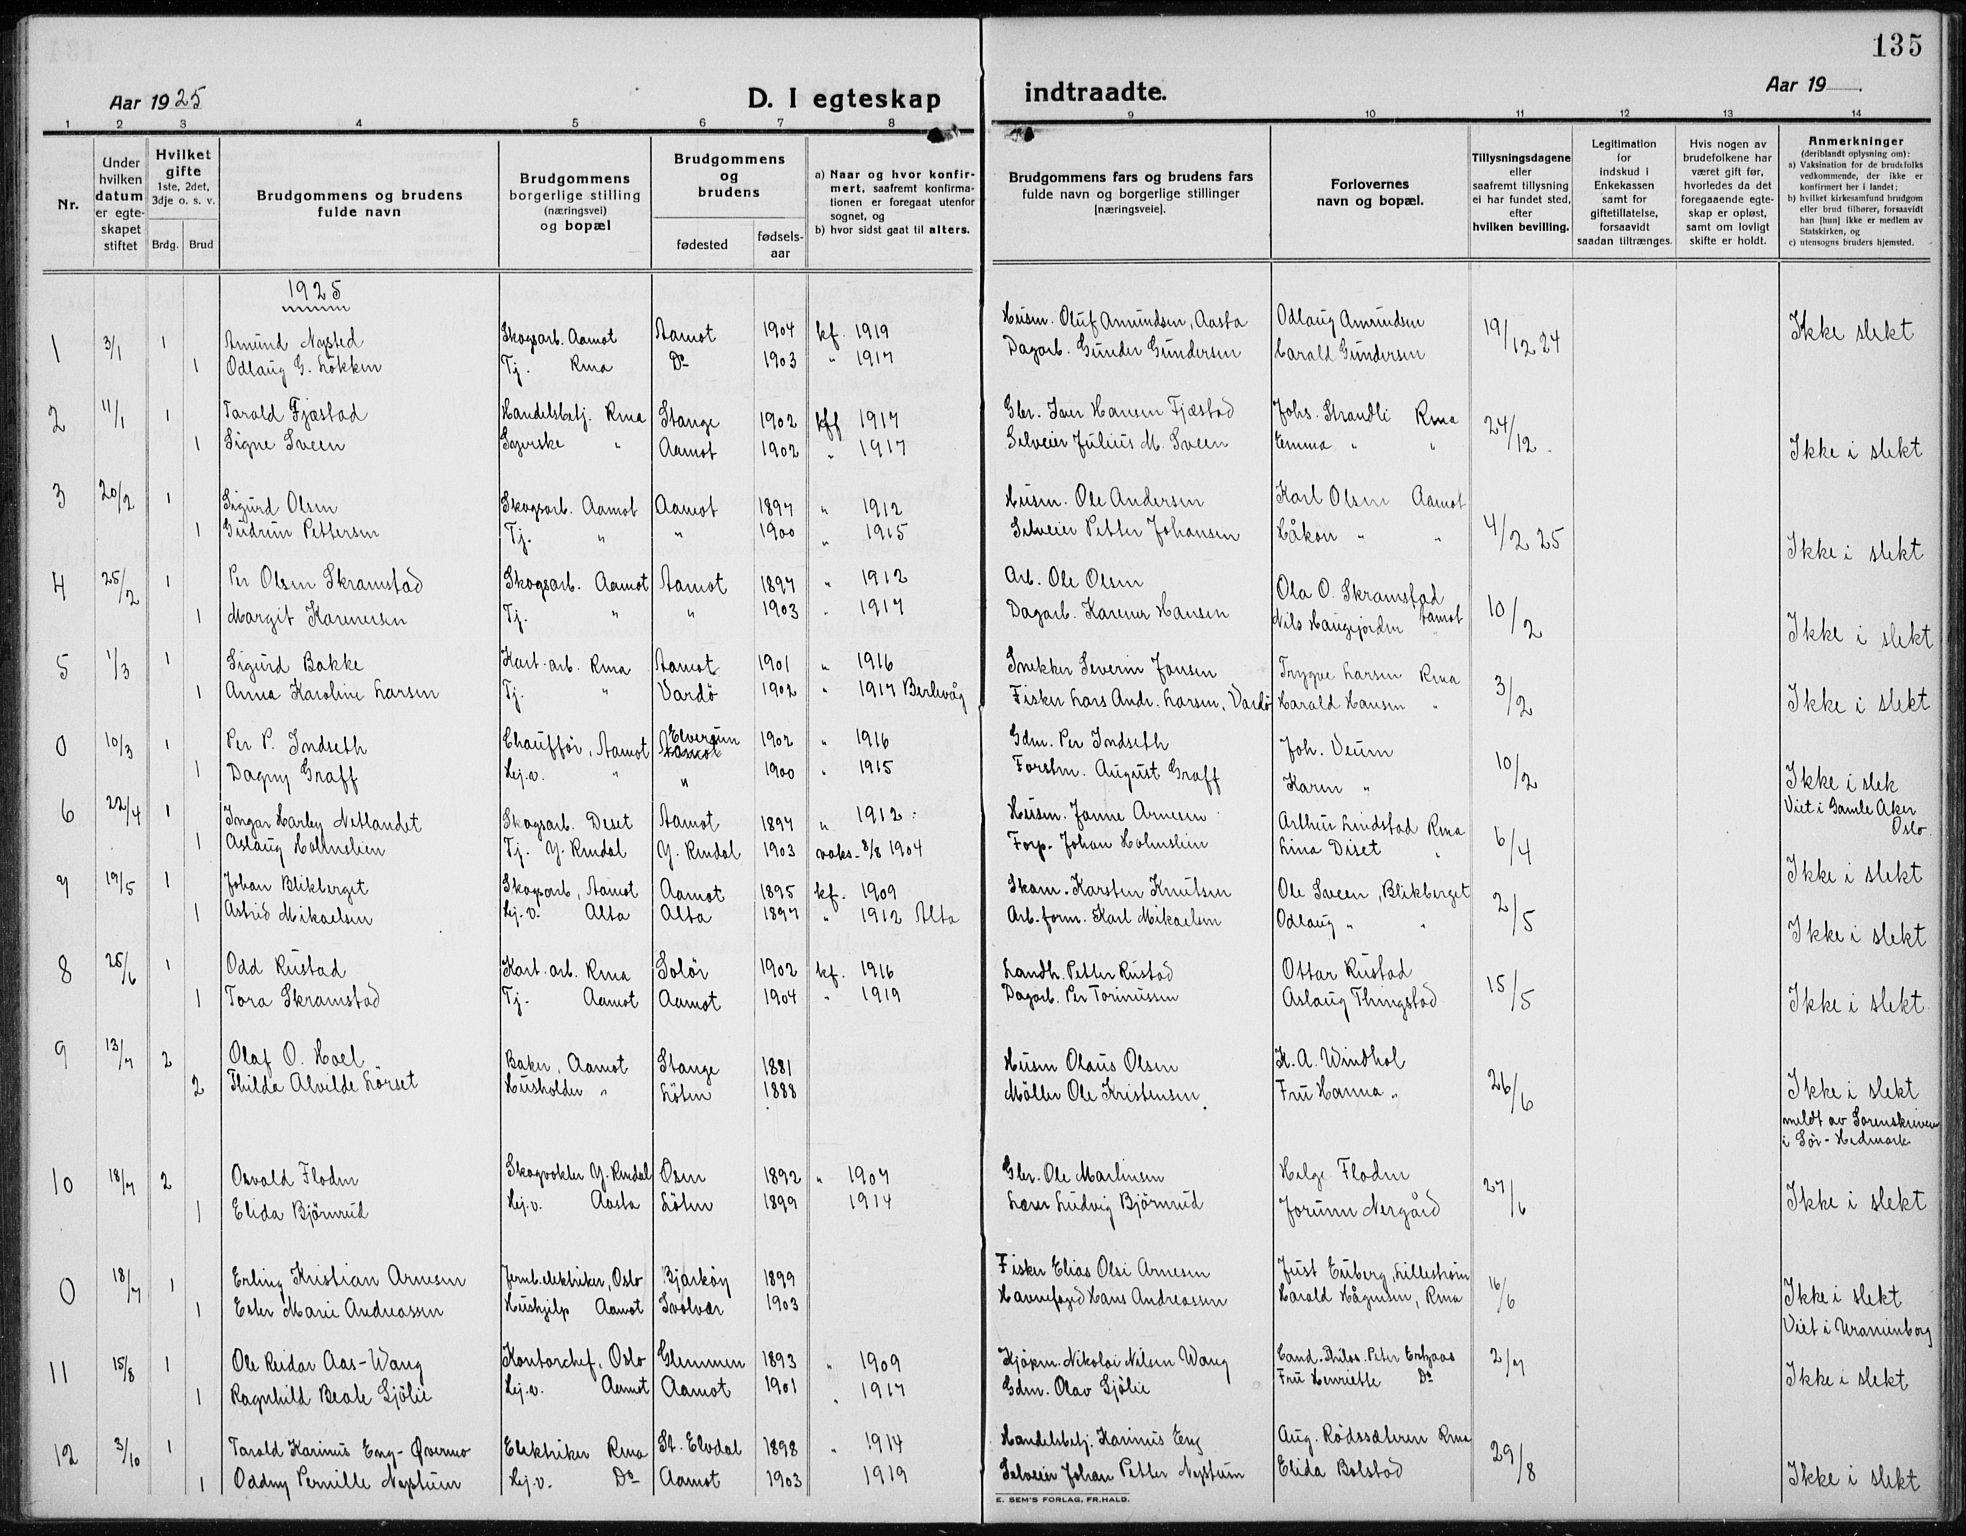 135
Aar 1925
D. I egteskap
indtraadte.
Aar 19 .
1 2 3 4 5 6 7 8
9 10 11 12 13 14
Nr.
Under hvilken datum er egteskapet stiftet
Hvilket gifte
1ste, 2det, 3dje o. s. v.
Brdg. Brud
Brudgommens og brudens fulde navn
Brudgommens borgerlige stilling (næringsvei) og bopæl
Brudgommens og brudens
fødested
fødsels-aar
a) Naar og hvor konfirmert, saafremt konfirmationen er foregaaet utenfor sognet, og
b) hvor sidst gaat til alters.
Brudgommens fars og brudens fars fulde navn og borgerlige stillinger [næringsveie].
Forlovernes navn og bopæl.
Tillysningsdagene eller saafremt tillysning ei har fundet sted, efter hvilken bevilling.
Legitimation for indskud i Enkekassen samt for giftetillatelse, forsaavidt saadan tiltrænges.
Hvis nogen av brudefolkene har været gift før, hvorledes da det foregaaende egteskap er opløst, samt om lovligt skifte er holdt.
Anmerkninger
(deriblandt oplysning om):
a) Vaksination for de brudefolks vedkommende, der ikke er konfirmert her i landet;
b) hvilket kirkesamfund brudgom eller brud tilhører, forsaavidt han [hun] ikke er medlem av Statskirken, og
c) utensogns bruders hjemsted.
1925
1 3/1 1 Amund Nysted Skogsarb. Aamot Aamot 1904 kf. 1919 Husm. Oluf Amundsen, Aasta Odlaug Amundsen 19/12 24 Ikke slekt
1 Odlaug G. Løkken Tj. Rena Do 1903 " 1917 Dagarb. Gunder Gundersen Harald Gundersen
2 11/1 1 Tarald Fjæstad Handelsbetj. Rena Stange 1902 kff 1917 Gbr. Iver Hansen Fjæstad Johs. Strandli Rena 24/12. Ikke i slekt
1 Signe Sveen Syerske " Aamot 1902 " 1917 Selveier Julius M. Sveen Emma " "
3 20/2 1 Sigurd Olsen Skogsarb. Aamot Aamot 1897 " 1912 Husm. Ole Andersen Karl Olsen Aamot 4/2 25 Ikke i slekt
1 Gudrun Pettersen Tj. " " 1900 " 1915 Selveier Petter Johansen Håkon " "
4 25/2 1 Per Olsen Skramstad Skogsarb. Aamot Aamot 1897 " 1912 Arb. Ole Olsen Ola O. Skramstad Aamot 10/2 Ikke i slekt
1 Margit Karenersen Tj. " " 1903 " 1917 Dagarb. Karener Hansen Nils Haugfjorden "
5 1/3 1 Sigurd Bakke Kart. arb. Rena Aamot 1901 " 1916 Snekker Severin Jonsen Trygve Larsen Rena 3/2 Ikke i slekt
1 Anna Karoline Larsen Tj. " Vardø 1902 " 1917 Berlevåg Fisker Lars Andr. Larsen, Vardø Harald Hansen "
0 10/3 1 Per P. Indseth Chauffør, Aamot Elverum 1902 " 1916 Gdm. Per Indseth Joh. Veum 10/2 Ikke i slek
1 Dagny Graff Hj.v. " " 1900 " 1915 Forstm. August Graff Karen " Viet i Gamle Aker Oslo
6 22/4 1 Ingar Harley Netlandet Skogsarb. Deset Aamot 1897 " 1912 Husm. Janne Arnesen Arthur Lindstad Rena 6/4 Ikke i slekt
1 Aslaug Holmslien Tj. Y. Rendal Y. Rendal 1903 vaks. 8/8 1904 Forp. Johan Holmslien Lina Diset "
7 19/5 1 Johan Blikberget Skogsarb, Aamot Aamot 1895 kf. 1909 Skom. Karsten Knutsen Ole Sveen, Blikberget 2/5 Ikke i slekt
1 Astrid Mikaelsen Hj.v. Alta Alta 1897 " 1912 Alta Arb. form. Karl Mikaelsen Odlaug " "
8 25/6 1 Odd Rustad Kart. arb. Rena Solør 1902 kf. 1916 Landh. Petter Rustad Ottar Rustad 15/5 Ikke i slekt
1 Tora Skramstad Tj. Aamot Aamot 1904 " 1919 Dagarb. Per Torinussen Aslaug Thingstad
9 13/7 2 Olaf O. Hoel Baker, Aamot Stange 1881 Husm Olaus Olsen K. A. Windhol 26/6 Ikke i slekt
2 Thilda Alvilde Lørset Husholder " Løten 1888 Møller Ole Kristensen Fru Hanna " meldt av Sorenskriveren i Sør-Hedmark
10 18/7 2 Osvald Floden Skogvokter Y. Rendal Osen 1892 " 1907 Gbr. Ole Martinsen Helge Floden 27/6 Ikke i slekt
1 Elida Bjørnrud Hj.v. Aasta Løten 1899 1914 Lærer Ludvig Bjørnrud Jorunn Nergård
0 18/7 1 Erling Kristian Arnesen Jernb.elektriker, Oslo Bjarkøy 1899 Fisker Elias Olsi Arnesen Just Enberg, Lillestrøm 16/6 Ikke i slekt
1 Ester Marie Andreassen Hushjelp Aamot Svolvær 1903 Havnefoged Hans Andreassen Harald Hågensen, Rena Viet i Uranienborg
11 15/8 1 Ole Reidar Aas-Wang Kontorchef, Oslo Glemmen 1893 " 1909 Kjøpm. Nikolai Nilsen Wang Cand. Philos. Peter Ertzaas 2/7 Ikke i slekt
1 Ragnhild Beate Sjølie Hj.v. Aamot Aamot 1901 " 1917 Gdm. Olav Sjølie Fru Henriette Do
12 3/10 1 Tarald Karinus Eng-Øvermo Elektriker Rena St. Elvdal 1898 " 1914 Handelsbetj. Karinus Eng Aug. Rødssæteren Rena 29/8 Ikke i slekt
1 Oddny Pernille Neptun Hj.v. Do Aamot 1903 1919 Selveier Johan Petter Neptun Elida Bolstad
E. SEM'S FORLAG, FR.HALD.